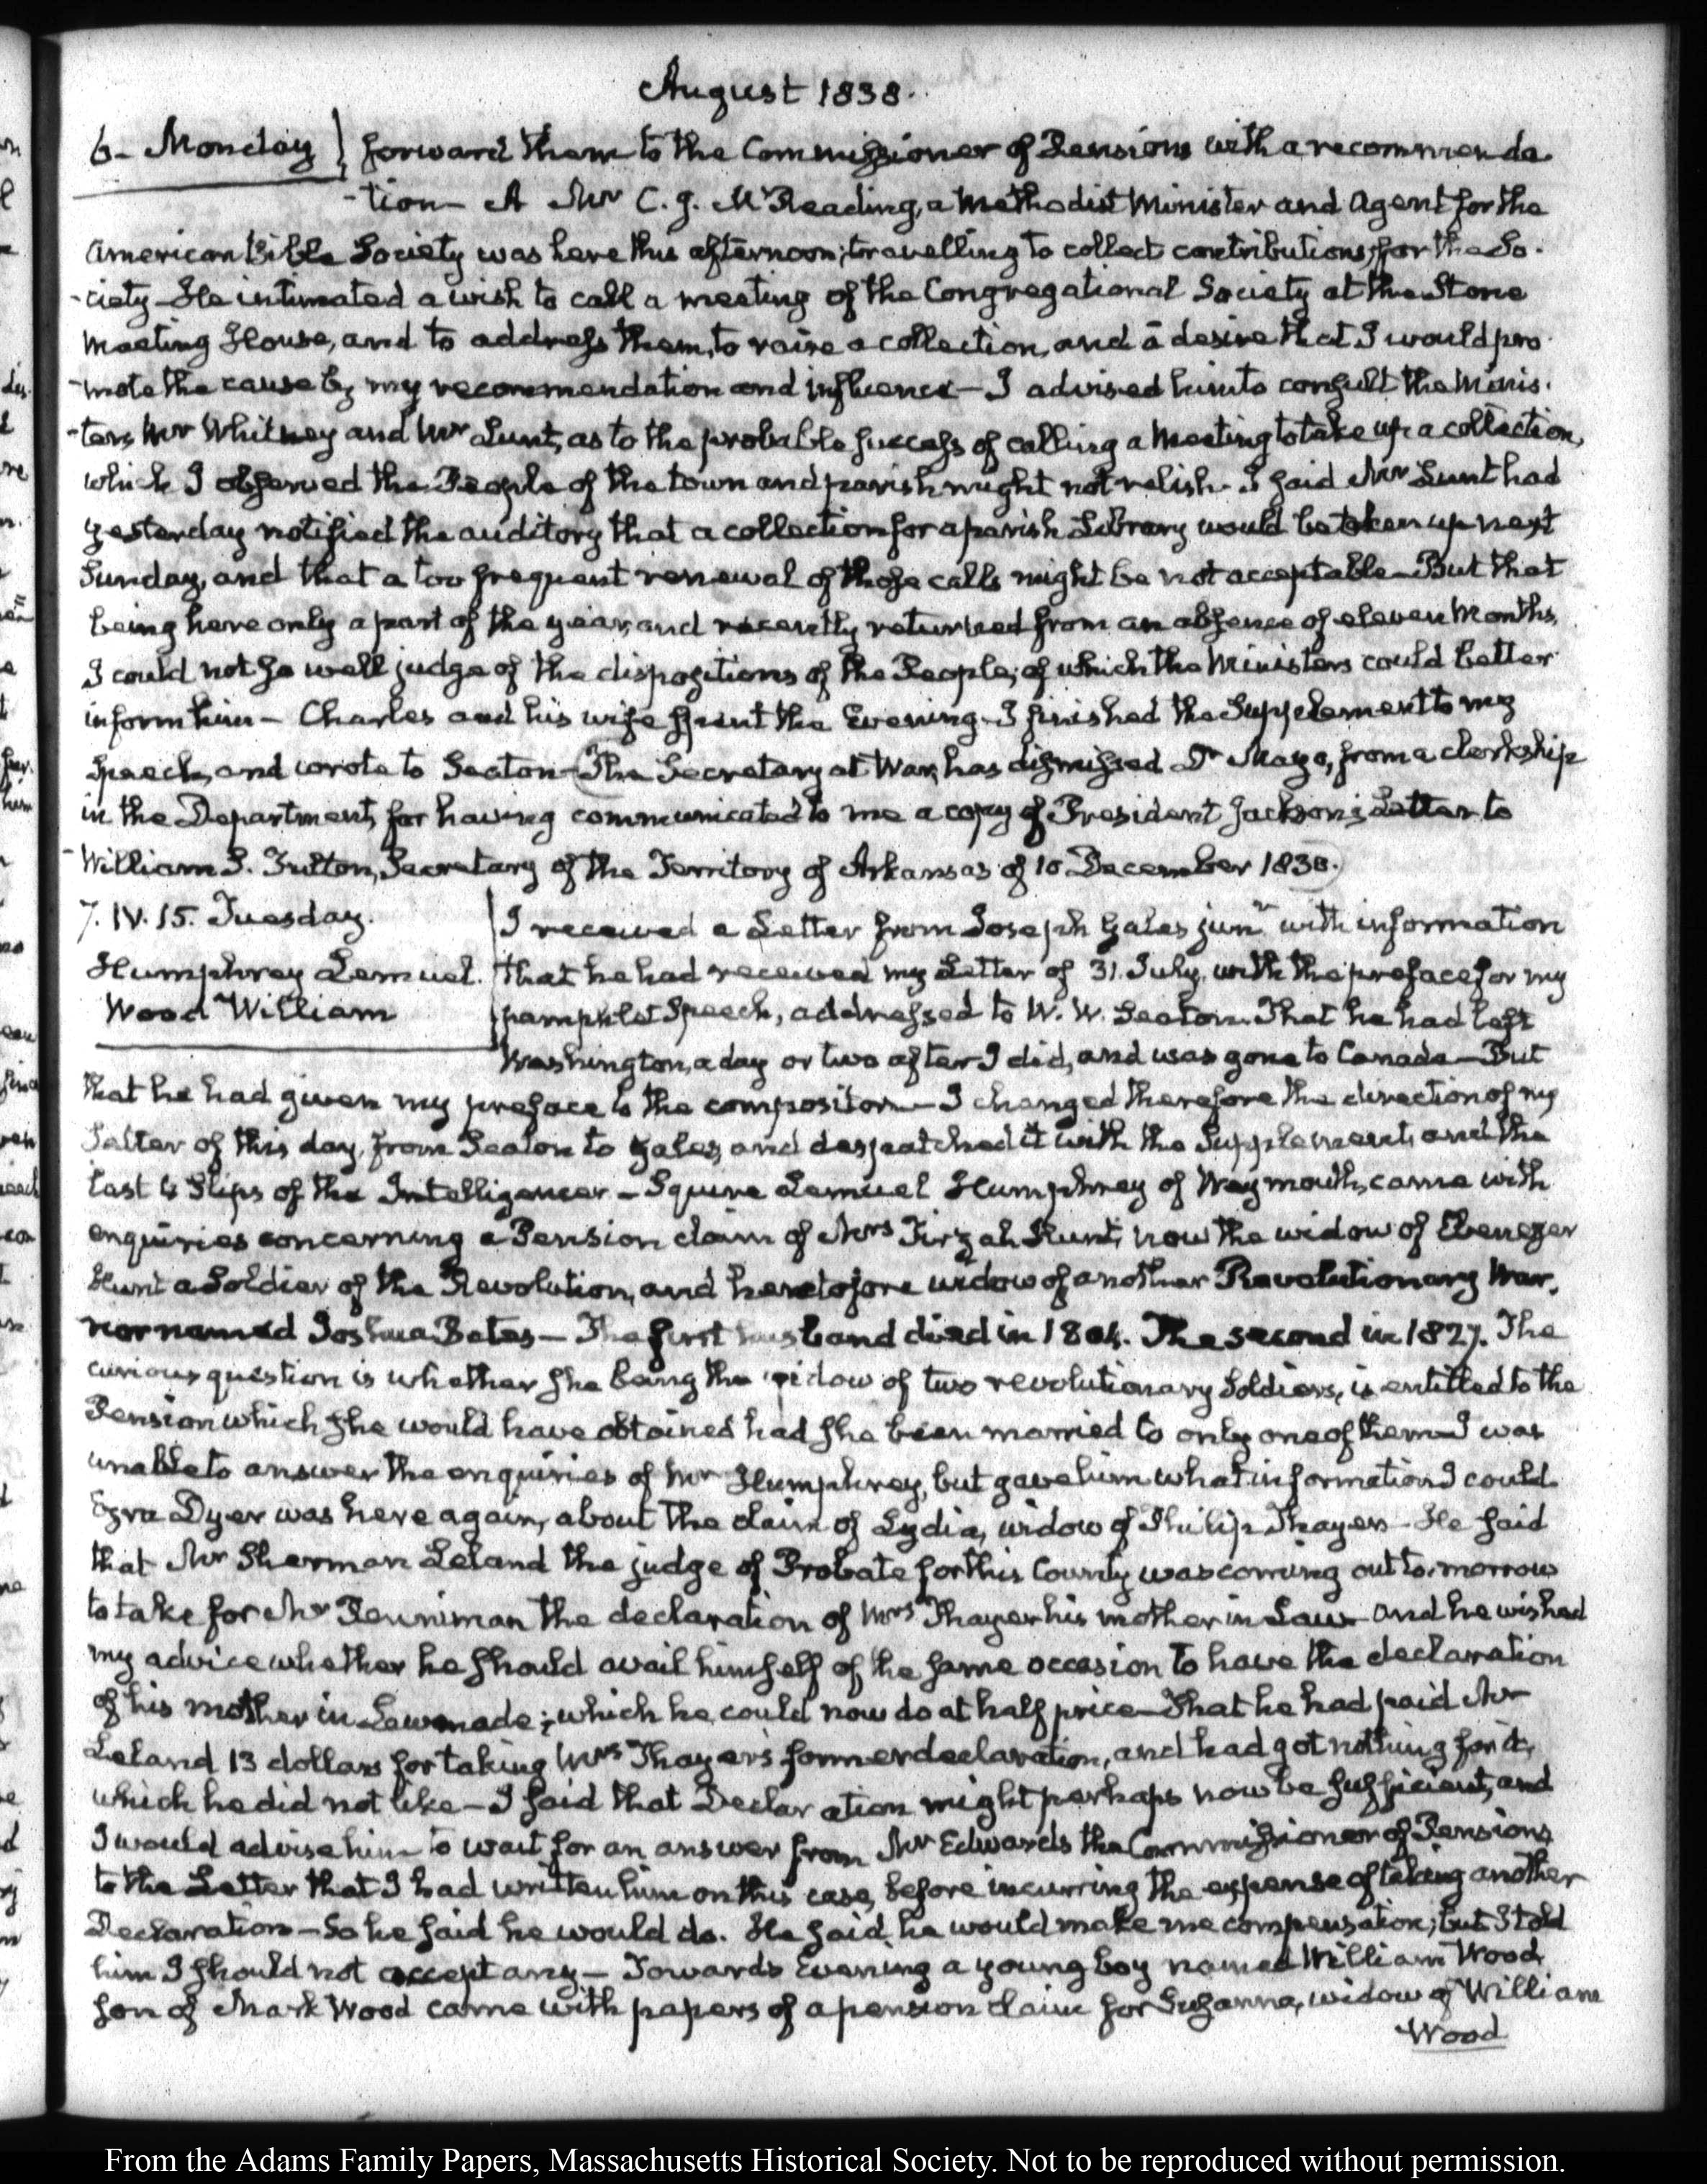 August 1838.
6- Monday forward them to the Commissioner of Pensions with a recommenda-
-tion- A Mr C. J. McReading, a Methodist Minister and Agent for the
American Bible Society was here this afternoon; travelling to collect contributions, for the So-
-ciety- He intimated a wish to call a meeting of the Congregational Society at the Stone
Meeting House, and to address them, to raise a collection, and a desire that I would pro-
-mote the cause by my recommendation and influence- I advised him to consult the Minis-
-ters Mr Whitney and Mr Lunt, as to the probable success of calling a Meeting to take up a collection,
which I observed the People of the town and parish might not relish. I said Mr Lunt had
yesterday notified the auditory that a collection for a parish Library would be taken up next
Sunday, and that a too frequent renewal of those calls might be not acceptable- But that
being here only a part of the year, and recently returned from an absence of eleven Months,
I could not so well judge of the dispositions of the People; of which the Ministers could better
inform him- Charles and his wife spent the Evening- I finished the Supplement to my
Speech, and wrote to Seaton- The Secretary at War, has dismissed Dr Mayo, from a clerkship
in the Department, for having communicated to me a copy of President Jackson's Letter to
William S. Fulton, Secretary of the Territory of Arkansas of 10 December 1830.
7. IV. 15. Tuesday. I received a Letter from Joseph Gales junr with information
Humphrey Lemuel. that he had received my Letter of 31. July, with the preface for my
Wood William pamphlet Speech, addressed to W. W. Seaton. That he had left
Washington, a day or two after I did, and was gone to Canada- But
that he had given my preface to the compositor- I changed therefore the direction of my
Letter of this day, from Seaton to Gales, and despatched it with the Supplement, and the
last 4 Slips of the Intelligencer- Squire Lemuel Humphrey of Weymouth, came with
enquiries concerning a Pension claim of Mrs Tirzah Hunt, now the widow of Ebenezer
Hunt a Soldier of the Revolution, and heretofore widow of another Revolutionary War-
rior named Joshua Bates- The first husband died in 1804. The second in 1827. The
curious question is whether she being the widow of two revolutionary Soldiers, is entitled to the
Pension which she would have obtained had she been married to only one of them- I was
unable to answer the enquiries of Mr Humphrey, but gave him what information I could.
Ezra Dyer was here again, about the claim of Lydia, widow of Philip Thayer- He said
that Mr Sherman Leland the judge of Probate for this County was coming out to-morrow
to take for Mr Penniman the declaration of Mrs Thayer his mother in Law- and he wished
my advice whether he should avail himself of the same occasion to have the declaration
of his mother in Law made; which he could now do at half price- That he had paid Mr
Leland 13 dollars for taking Mrs Thayer's former declaration, and had got nothing for it,
which he did not like- I said that Declaration might perhaps now be sufficient, and
I would advise him to wait for an answer from Mr Edwards the Commissioner of Pensions
to the Letter that I had written him on this case, before incurring the expense of taking another
Declaration- So he said he would do. He said, he would make me compensation; but I told
him I should not accept any- Towards Evening a young boy named William Wood
son of Mark Wood came with papers of a pension claim for Suzanna, widow of William
Wood
From the Adams Family Papers, Massachusetts Historical Society. Not to be reproduced without permission.